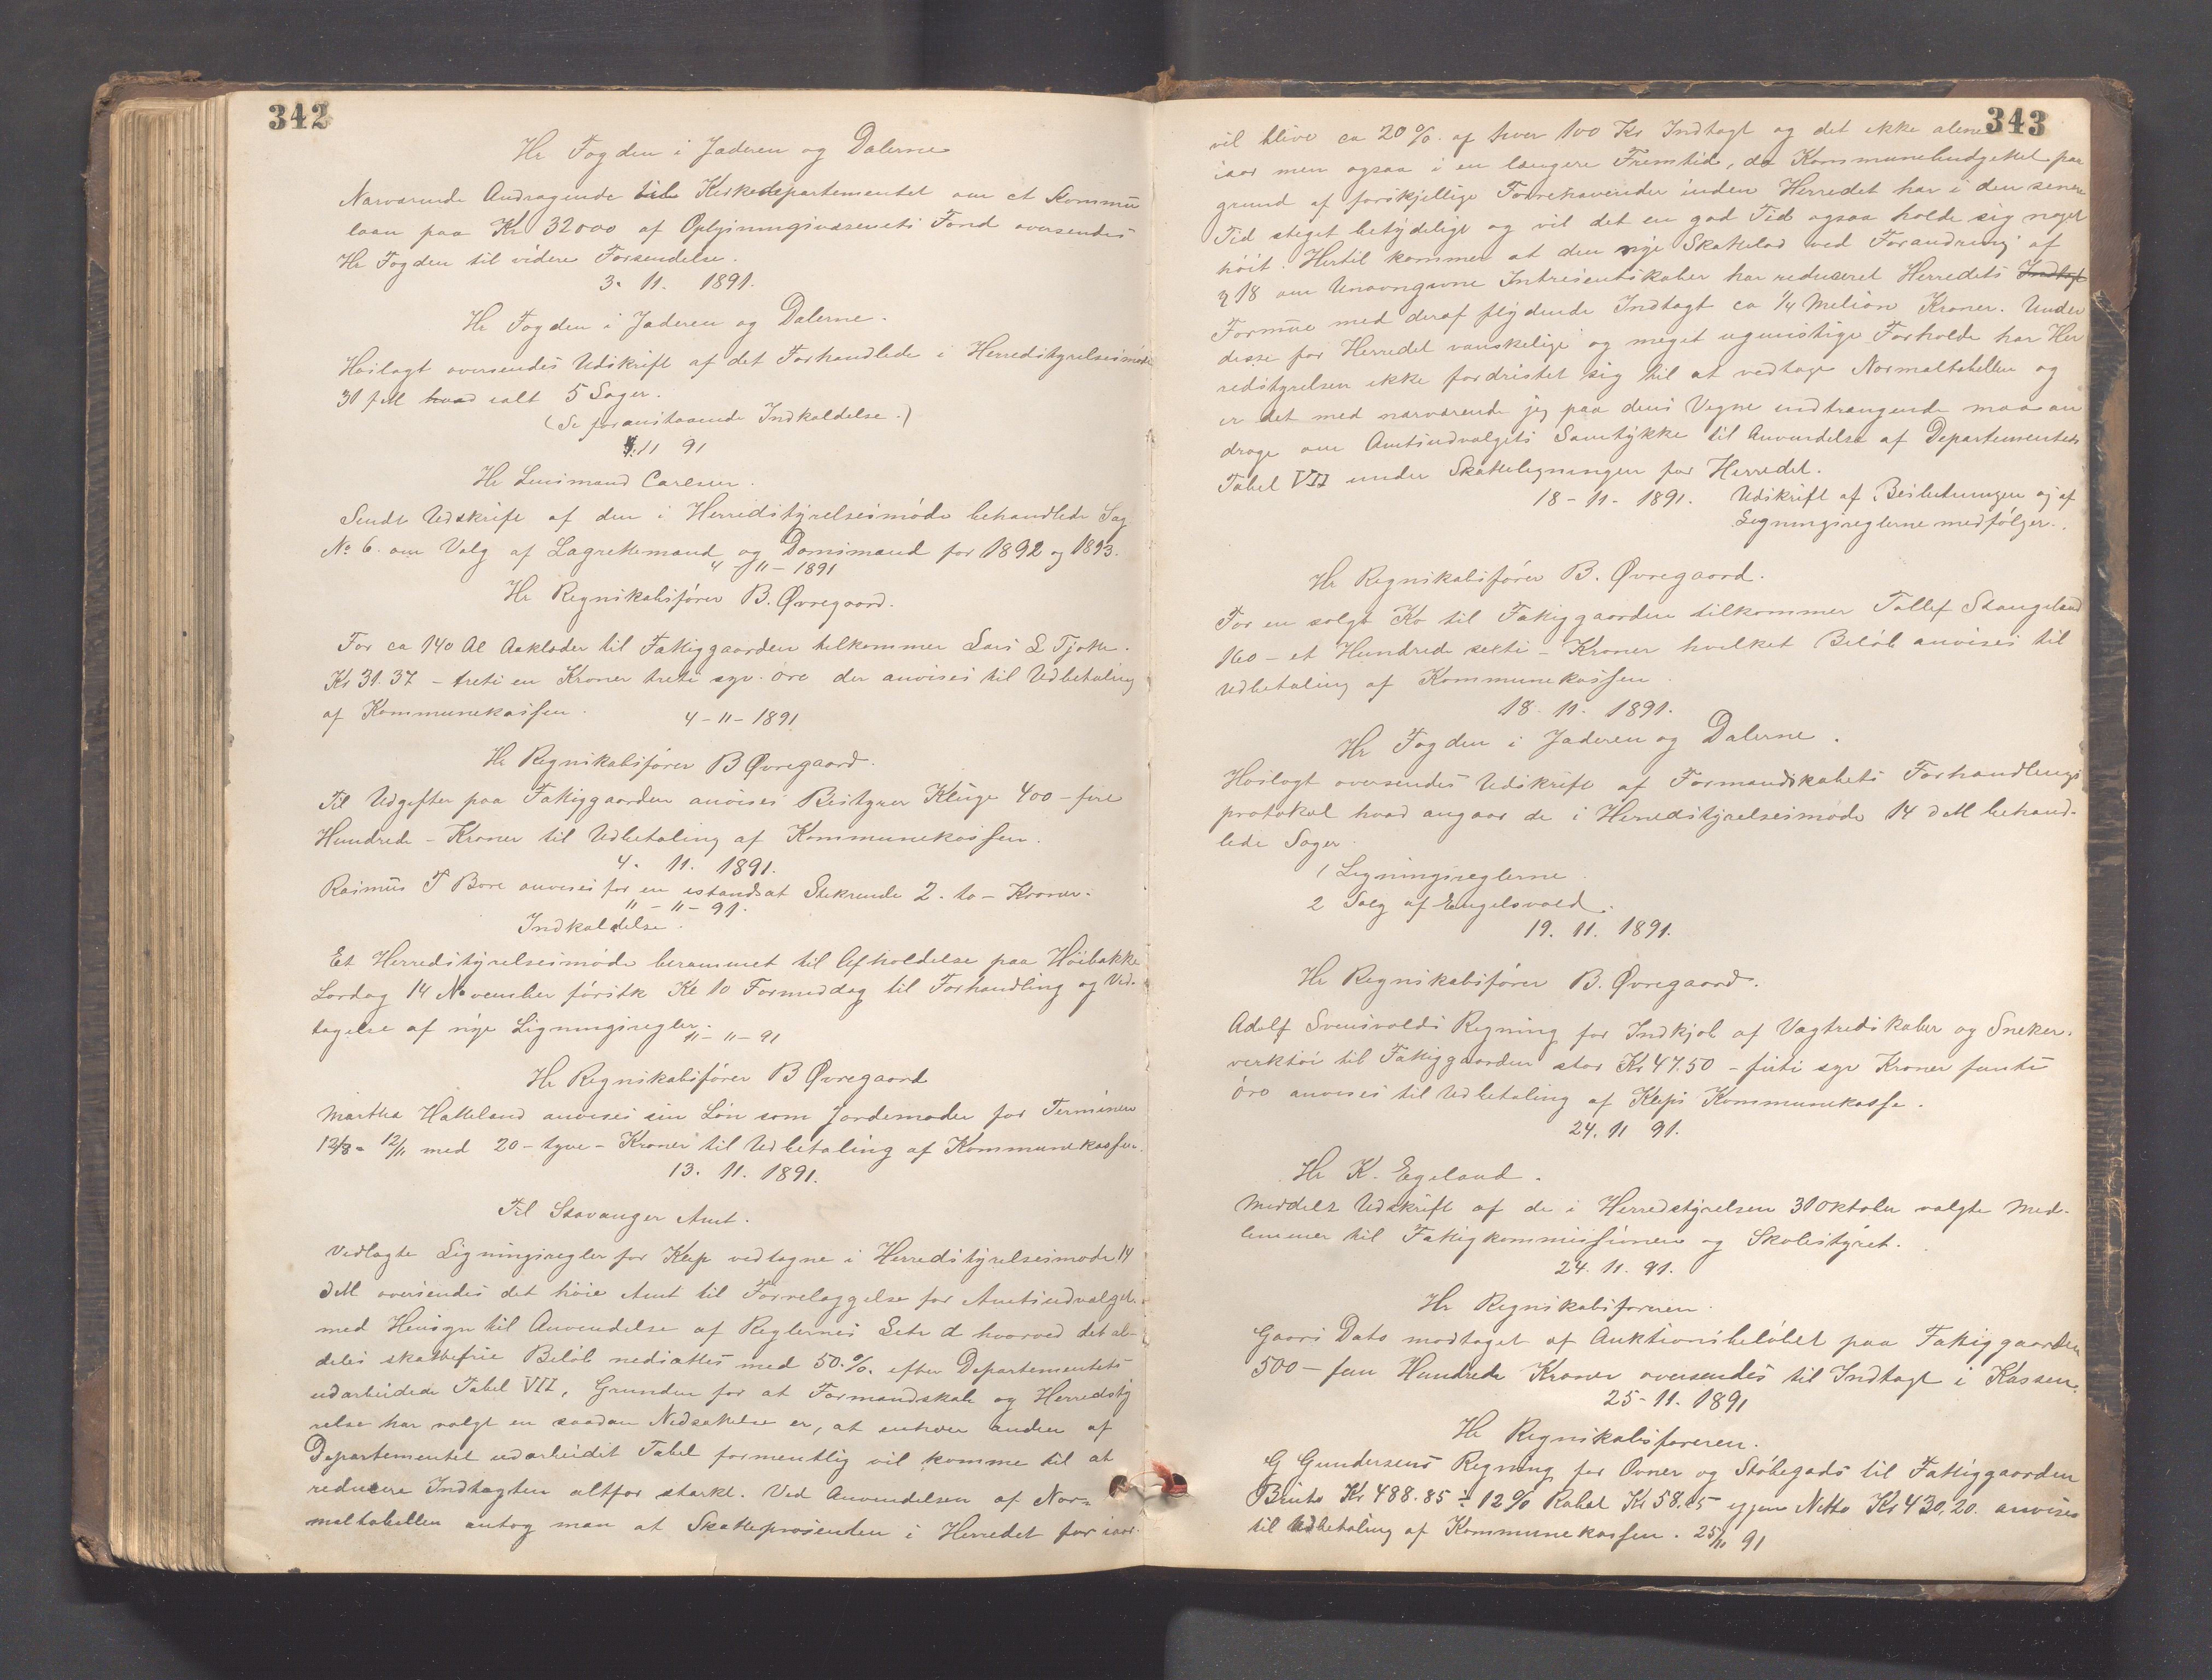 342
Hr Fogden i Jæderen og Dalerne
Nærværende Andragende til Kirkedepartementet om et Kommu
laan paa Kr 32000 af Oplysningsvæsenets Fond oversendes
Hr Fogden til videre Forsendelse.
3. 11. 1891.
Hr Fogden i Jæderen og Dalerne.
Hoslagt oversendes Udskrift af det Forhandlede i Herredstyrelsesmøde
31 f M hvad ialt 5 Sager.
(Se foranstaaende Indkaldelse.)
4. 11 91
Hr Lensmand Carlsen.
Sendt Udskrift af den i Herredstyrelsesmøde behandlede Sag
No 6. om Valg af Lagrettemænd og Domsmænd for 1892 og 1893.
4 - 11 - 1891
Hr Regnskabsfører B. Øvregaard.
For ca 140 Al Aaklæder til Fattiggaarden tilkommer Lars L Tjøtta.
Kr 31.37 - treti en Kroner treti syv øre der anvises til Udbetaling
af Kommunekassen.
4 - 11 - 1891
Hr Regnskabsfører B Øvregaard.
Til Udgifter paa Fattiggaarden anvises Bestyrer Kluge 400 - fire
Hundrede - Kroner til Udbetaling af Kommunekassen.
4. 11. 1891.
Rasmus T Bore anvises for en istandsat Stikrende 2. to - Kroner.
" - " - 91.
Indkaldelse.
Et Herredstyrelsesmøde berammet til Afholdelse paa Høibakke
Lørdag 14 November førstk Kl 10 Formiddag til Forhandling og Ved-
tagelse af nye Ligningsregler.
" - " - 91
Hr Regnskabsfører B Øvregaard
Martha Hatteland anvises sin Løn som Jordemoder for Terminen
12/8 - 12/11 med 20 - tyve - Kroner til Udbetaling af Kommunekassen.
13. 11. 1891.
Til Stavanger Amt.
Vedlagte Ligningsregler for Klep vedtagne i Herredstyrelsesmøde 14
d M oversendes det høie Amt til Forrelæggelse for Amtsudvalget
med Hensyn til Anvendelse af Reglernes Litr d hvorved det al-
deles skattefrie Beløb nedsættes med 50.%. efter Departementets
udarbeidede Tabel VII, Grunden for at Formandskab og Herredsty
relse har valgt en saadan Nedsættelse er, at enhver anden af
Departementet udarbeidet Tabel formentlig vil komme til at
reducere Indtægten altfor stærkt. Ved Anvendelsen af Nor-
maltabellen antog man at Skatteprosenten i Herredet for iaar
343
vil blive ca 20 %. af hver 100 Kr Indtægt og det ikke alene
iaar men ogsaa i en længere Fremtid, da Kommunebudgettet paa
grund af forskjellige Forrehavender inden Herredet har i den senere
Tid steget betydelige og vil det en god Tid ogsaa holde sig noget
høit. Hertil kommer at den nye Skattelov ved Forandring af
§ 18 om Unavngivne Intresentskaber har reduceret Herredets Indtægt
Formue med deraf flydende Indtægt ca 1/4 Melion Kroner. Under
disse for Herredet vanskelige og meget ugunstige Forholde har Her
redstyrelsen ikke fordristet sig til at vedtage Normaltabellen og
er det med nærværende jeg paa dens Vegne indtrængende maa an
drage om Amtsudvalgets Samtykke til Anvendelse af Departementets
Tabel VII under Skatteligningen for Herredet.
18 - 11 - 1891. Udskrift af Beslutningen og af
Ligningsreglerne medfølger.
Hr Regnskabsfører B. Øvregaard.
For en solgt Ko til Fattiggaarden tilkommer Tollef Stangeland
160 - et Hundrede seksti - Kroner hvilket Beløb anvises til
Udbetaling af Kommunekassen.
18. 11. 1891.
Hr Fogden i Jæderen og Dalerne.
Hoslagt oversendes Udskrift af Formandskabets Forhandlings
protokol hvad angaar de i Herredstyrelsesmøde 14 d M behand-
lede Sager.
1 Ligningsreglerne.
2 Salg af Engelsvold.
19. 11. 1891.
Hr Regnskabsfører B. Øvregaard.
Adolf Svensvolds Regning for Indkjøb af Vægtredskaber og Sneker-
verktøi til Fattiggaarden stor Kr 47.50 - firti syv Kroner femti
øre anvises til Udbetaling af Kleps Kommunekasse.
24. 11 91.
Hr K. Egeland.
Meddels Udskrift af de i Herredstyrelsen 31 Oktober valgte Med-
lemmer til Fattigkommissionen og Skolestyret.
24. 11. 91.
Hr Regnskabsføreren.
Gaars Dato modtaget af Auktionsbeløbet paa Fattiggaarden
500 - fem Hundrede Kroner oversendes til Indtægt i Kassen.
25 - 11. 1891
Hr Regnskabsføreren.
G Gundersens Regning for Ovner og Støbegods til Fattiggaarden
Bruto Kr 488.85 ÷ 12% Rabat Kr 58.65 igjen Netto Kr 430,20. anvises
til Udbetaling af Kommunekassen. 25/11 91